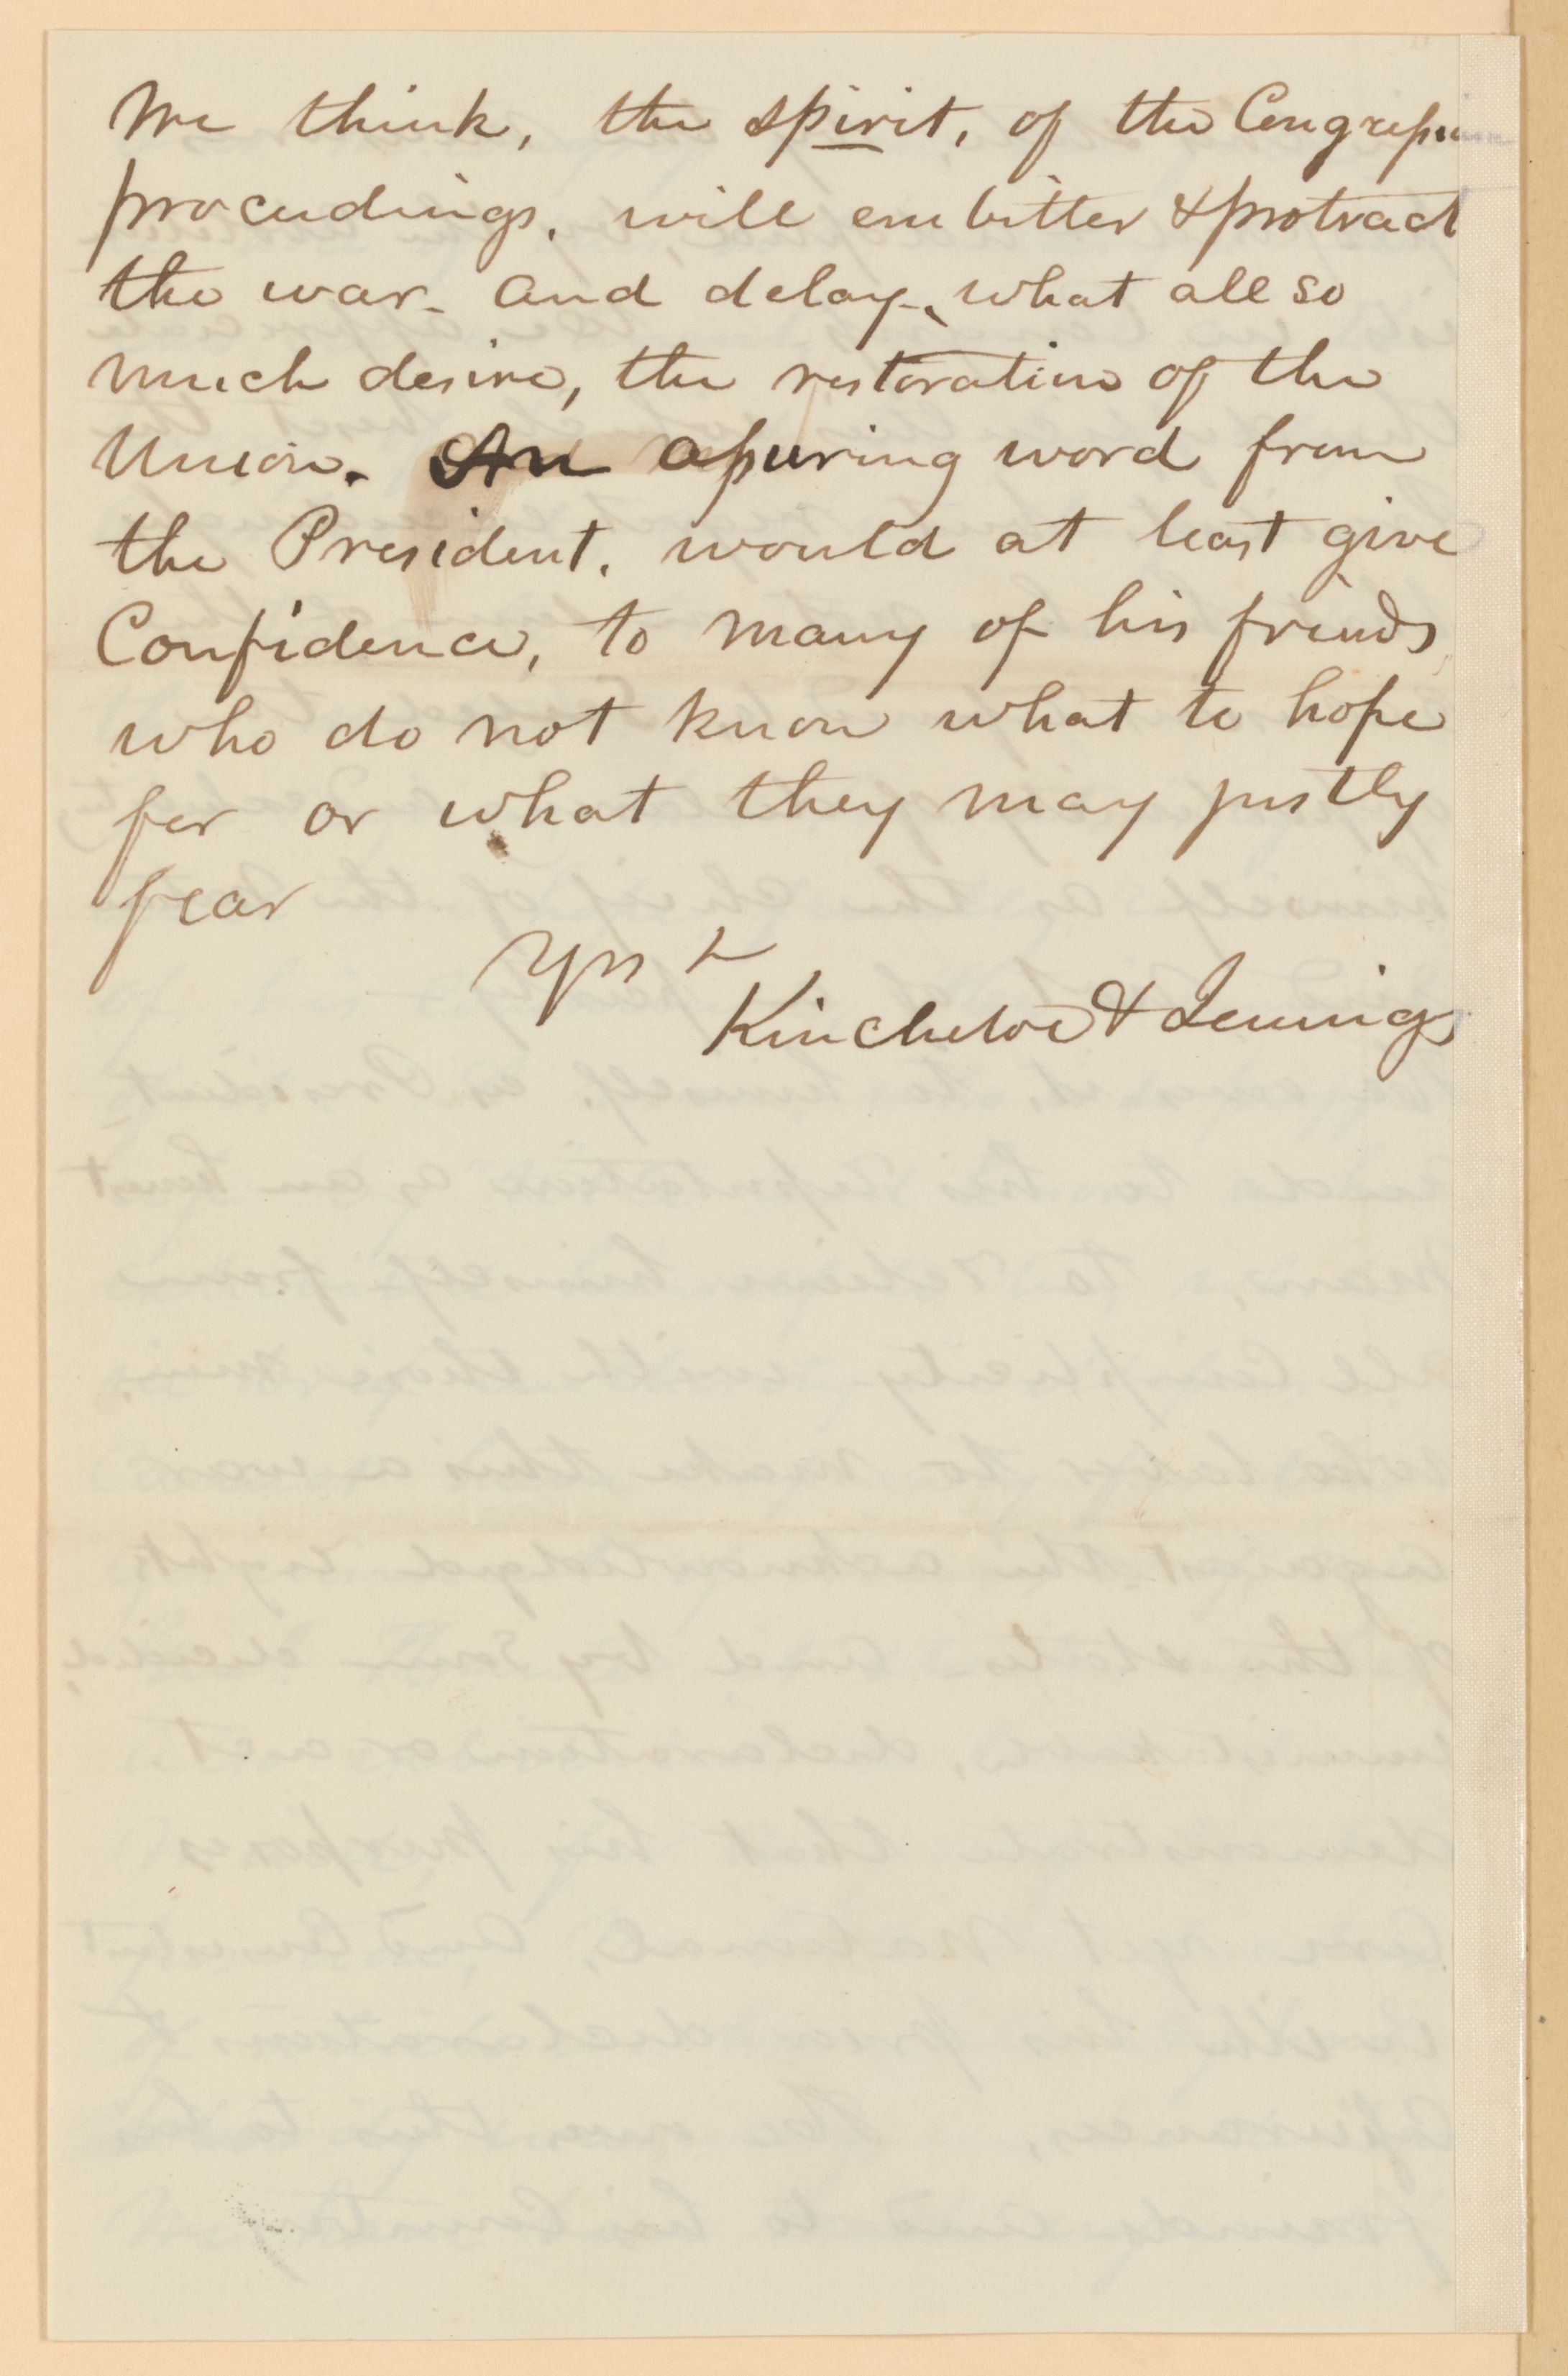 We think, the spirit, of the Congression
proceedings, will embitter & protract
the war. and delay, what all so
much desire, the restoration of the
Union. An assuring word from
the President, would at least give
Confidence, to many of his friends,
who do not know what to hope
for or what they may justly
fear
Yrs &
Kincheloe & Jennings